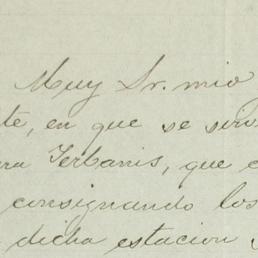 Muy Sr. mio
te, en que se sir
ra Terbanis, que
consignando los
dicha estacion